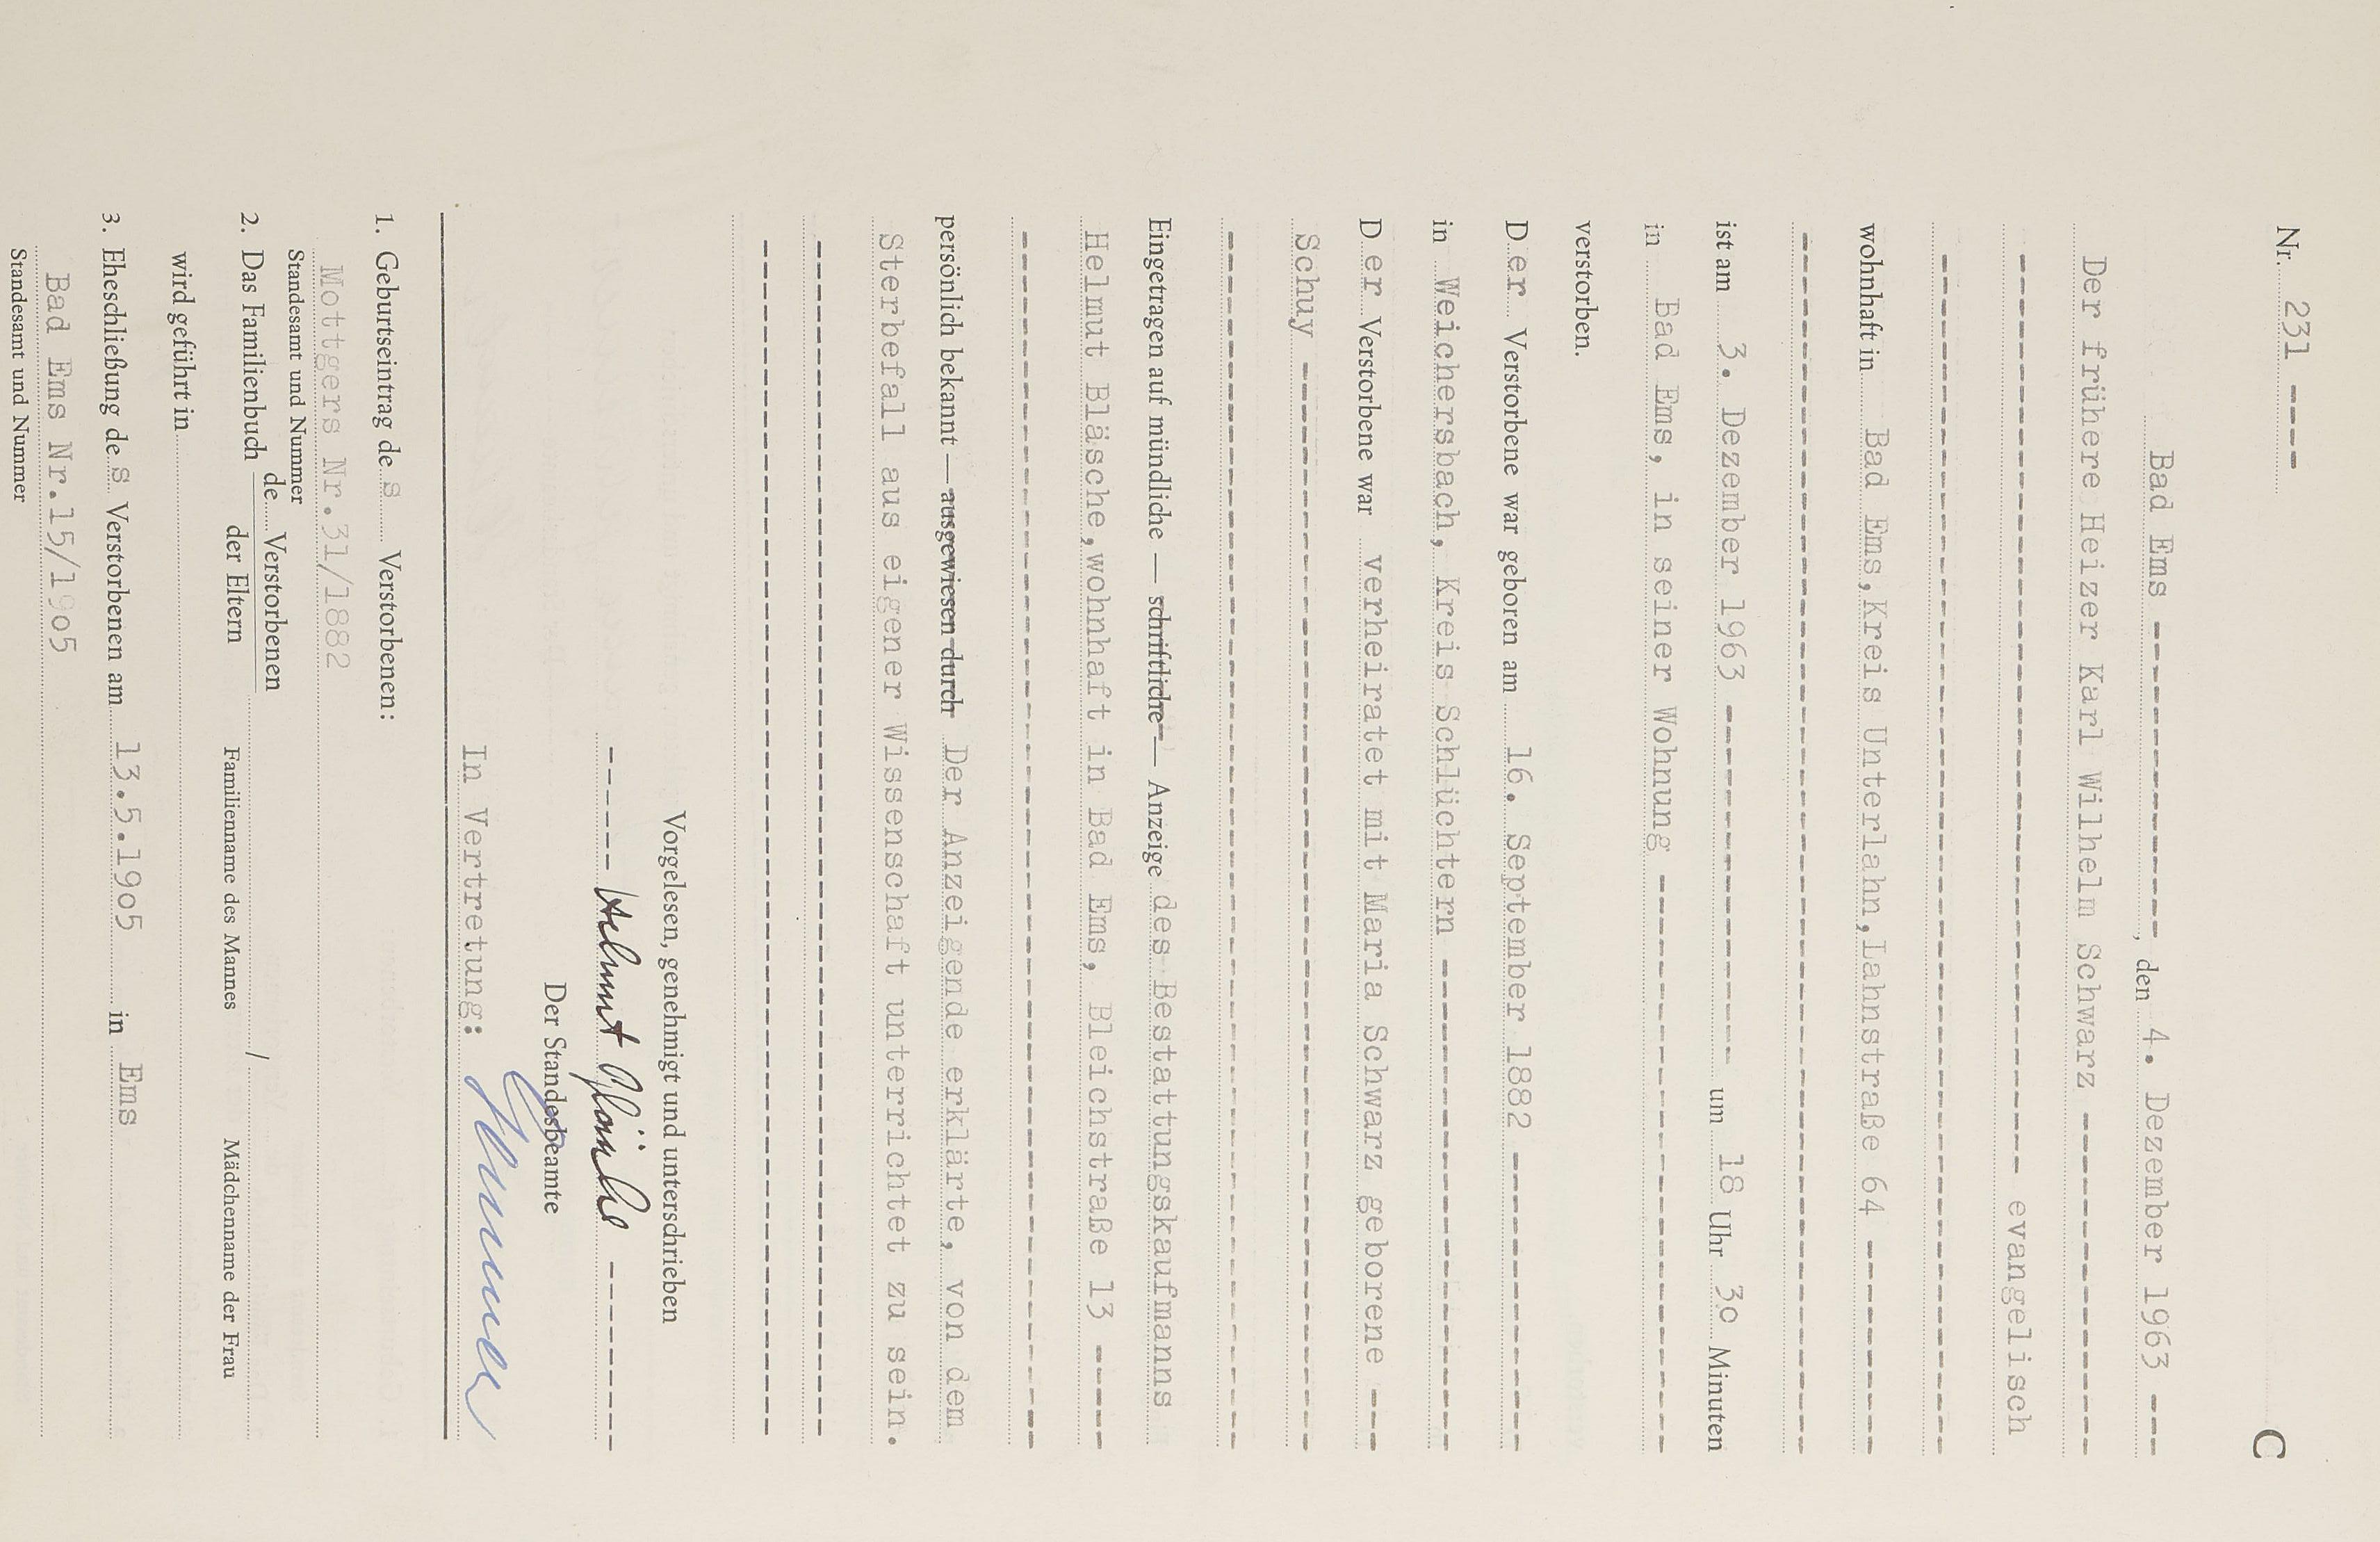 C
Nr. 231 ----
Bad Ems ----------------, den 4. Dezember 1963 ---
Der frühere Heizer Karl Wilhelm Schwarz ----------------
---------------------------------------- evangelisch
----------------------------------------
wohnhaft in Bad Ems,Kreis Unterlahn,Lahnstraße 64 ----------
----------------------------------------
ist am 3. Dezember 1963 ---------------- um 18 Uhr 3o Minuten
in Bad Ems, in seiner Wohnung ----------------
verstorben.
D er Verstorbene war geboren am 16. September 1882 ----------------
in Weichersbach, Kreis Schlüchtern ----------------
D er Verstorbene war verheiratet mit Maria Schwarz geborene ---
Schuy ----------------------------------------
----------------------------------------
Eingetragen auf mündliche — schriftliche — Anzeige des Bestattungskaufmanns
Helmut Bläsche,wohnhaft in Bad Ems, Bleichstraße 13 -----
----------------------------------------
persönlich bekannt — ausgewiesen durch Der Anzeigende erklärte, von dem
Sterbefall aus eigener Wissenschaft unterrichtet zu sein.
----------------------------------------
----------------------------------------
Vorgelesen, genehmigt und unterschrieben
----- Helmut Bläsche --------
Der Standesbeamte
In Vertretung:
1. Geburtseintrag de s Verstorbenen:
Mottgers Nr.31/1882
Standesamt und Nummer
2. Das Familienbuch de Verstorbenen / der Eltern
Familienname des Mannes Mädchenname der Frau
wird geführt in
3. Eheschließung de s Verstorbenen am 13.5.19o5 in Ems
Bad Ems Nr.15/19o5
Standesamt und Nummer